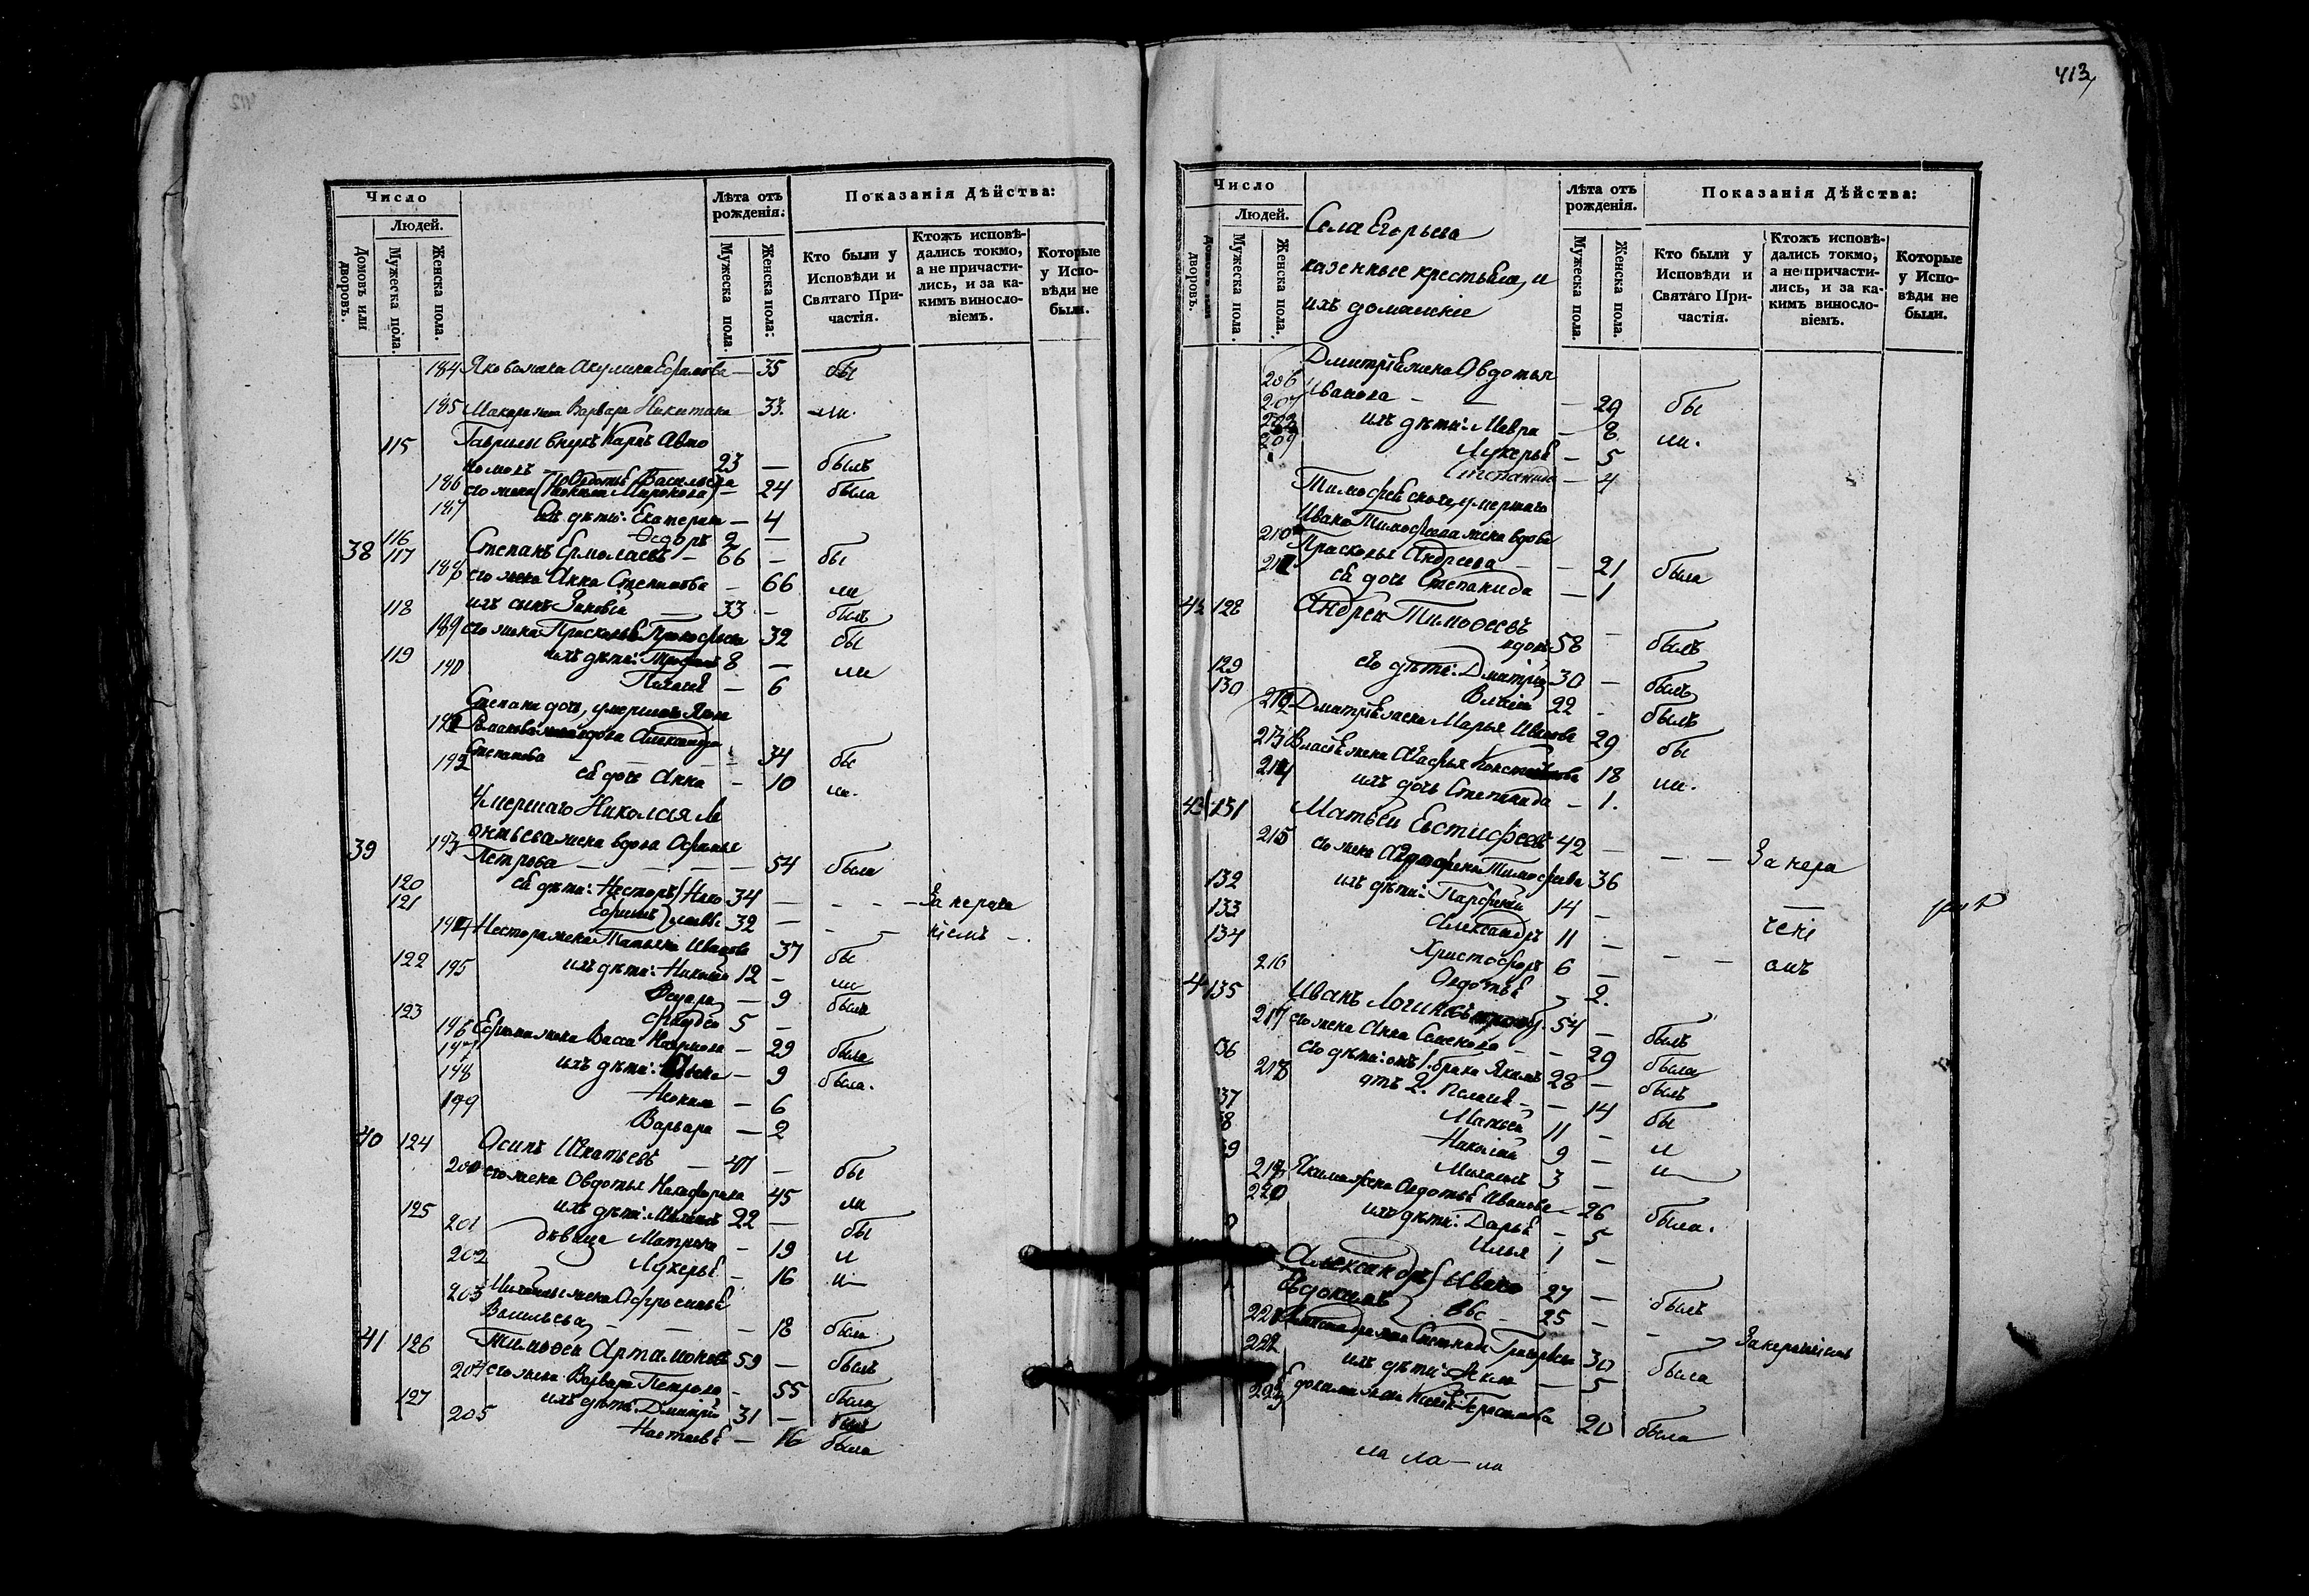 413
Число
Людей.
Домовъ или дворовъ.
Мужеска пола.
Женска пола.
Лѣта отъ рожденія:
Мужеска пола.
Женска пола:
Показанія Дѣйства:
Кто были у Исповѣди и Святаго Причастія.
Ктожъ исповѣдались токмо, а не причастились, и за какимъ винословіемъ.
Которые у Исповѣди не были.
184 Якова жена Акулина Ефимова — 35 бы
185 Макара жена Варвара Никитина 33 ли.
115 Гаврилы внукъ Карпъ Авто
номовъ 23 — былъ
186 его жена Васильева — 24 была
187 дѣти: Екатерина — 4
116 Ѳедоръ 2 —
38 117 Степанъ Ермолаевъ — 66 — бы
188 его жена Анна Степанова — 66 ли
118 ихъ сынъ Зиновій — 33 — былъ
189 его жена Прасковья Прокофьева 32 бы
119 ихъ дѣти: Трофимъ 8 — ли
190 Пелагея — 6
Степана дочь, умершаго
191 вдова Александра
Степанова — 34 бы
192 ея дочь Анна — 10 ли.
Умершаго Николая Ле
39 193 онтьева жена вдова Офимья
Петрова — 54 была
120 ея дѣти: Несторъ Нико 34 — За нераче
121 Ефимъ лаевы 32 — ніемъ
194 Нестора жена Татьяна Иванова 37 бы
122 195 ихъ дѣти: Николай 12 — ли
Ѳедора — 9 была
123 5 —
196 Ефима жена Васса — 29 была
197 ихъ дѣти: — 9 была.
198 — 6
199 Варвара — 2
40 124 Осипъ Игнатьевъ — 47 — бы
200 его жена Овдотья Никифорова 45 ли
125 ихъ дѣти: Михаилъ 22 — бы
201 дѣвица Матрена — 19 и
202 Лукерья — 16 и
203 Михайлы жена Офросинья
Васильева — 18 была
41 126 Тимофей Артамоновъ 59 — былъ
204 его жена Варвара Петрова — 55 была
127 ихъ дѣти: Дмитрій 31 — былъ
205 Настасья — 16 была
Число
Людей.
Домовъ или дворовъ.
Мужеска пола
Женска пола.
Села Егорьева
казенные крестьяна, и
ихъ домашніе
Лѣта отъ рожденія.
Мужеска пола
Женска пола.
Показанія Дѣйства:
Кто были у Исповѣди и Святаго Причастія.
Ктожъ исповѣдались токмо, а не причастились, и за какимъ винословіемъ.
Которые у Исповѣди не были.
Дмитрія жена Овдотья
206 Иванова — 29 бы
207 ихъ дѣти: Мавра — 8 ли.
208 Лукерья — 5
209 Степанида — 4
Тимофея сына умершаго
Ивана Тимофеева жена вдова
210 Прасковья Андреева — 21 была
211 ея дочь Степанида — 1
42 128 Андрей Тимофеевъ
вдовъ 58 — былъ
129 его дѣти: Дмитрій 30 — былъ
130 Власій 22 — былъ
212 Дмитрія жена Марья Иванова 29 бы
213 Власія жена Агафья 18 ли.
214 ихъ дочь Степанида — 1.
43 131 Матвей Евстифеевъ 42 — За нера
215 его жена Тимофеева 36
132 ихъ дѣти: Парфенъ 14 —
133 Александръ 11 — чені
134 Христофоръ 6 — емъ
216 Овдотья — 2.
44 135 Иванъ Логиновъ 54 — былъ
217 его жена Анна Семенова — 29 была
136 его дѣти: отъ 1 брака Якимъ 28 — былъ
218 отъ 2. Пелагея — 14 бы
37 Матвей 11 — и
8 Николай 9 — и
9 Михаилъ 3 —
219 Якима жена Овдотья Иванова — 26 была.
220 ихъ дѣти: Дарья — 5
0 Илья 1 —
Александръ Ивано 27 — былъ
Евдокимъ вы — 25 — За нераченіемъ
221 Александра жена Степанида Григорьева 30 была
222 ихъ дѣти: — 5
223 Евдокима жена Герасимова 20 была
ла ла — ла